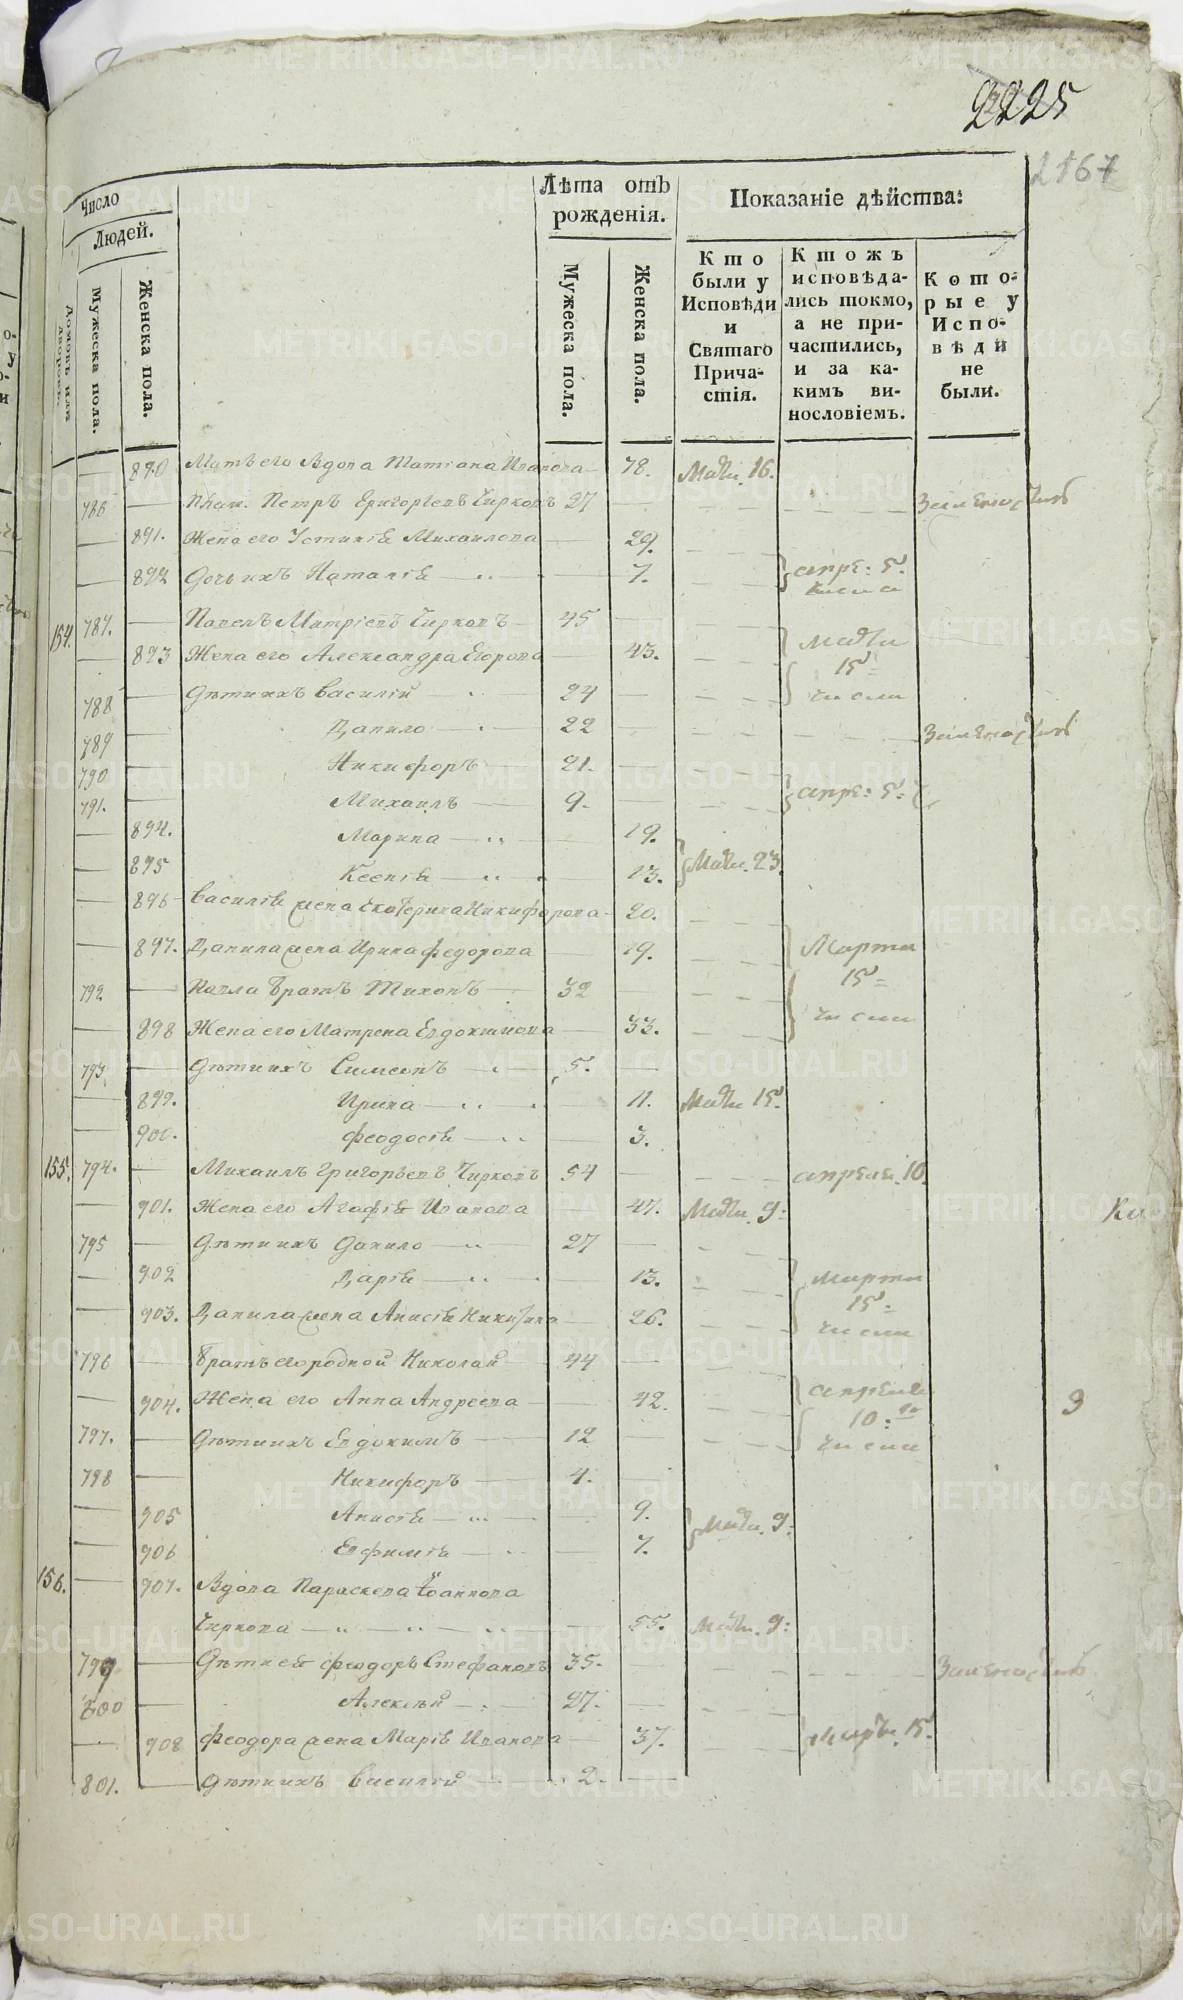 2225
2167
Число
Людей.
Домовъ или дворовъ.
Мужеска пола.
Женска пола.
Лѣта отъ рожденія.
Мужеска пола.
Женска пола.
Показаніе дѣйства:
Кто были у Исповѣди и Святаго Причастія.
Ктожъ исповѣдались токмо, а не причастились, и за какимъ винословіемъ.
Которые у Исповѣди не были.
— 890 Мать его Вдова Татиана Иванова — 78. Марта 16.
786 — Петръ Григорьевъ Чирковъ 27 —
— 891. Жена его Устинія Михаилова — 29.
— 892 Дочь ихъ Наталія — 7. апре: 5. числа
154. 787. — Павелъ Дмитріевъ Чирковъ — 45 —
— 893 Жена его Александра Егорова — 43. марта
788 — Дѣти ихъ Василій — 24 — 15 числа
789 — Данило — 22 —
790 — Никифоръ — 21. —
791. — Михаилъ — 9. — апре: 5:
— 894. Марина — 19.
— 895 Ксенія — 13. Марта 23.
— 896 Василія жена Екатерина Никифорова — 20.
— 897. Данила жена Ирина Федорова — 19. Марта
792 — Павла братъ Тихонъ — 32 — 15
— 898 Жена его Матрена Евдокимова — 33. числа
793. — Дѣти ихъ Симеонъ — 5. —
— 899. Ирина — 11. Марта 15.
— 900. Феодосія — 3.
155. 794. — Михаилъ Григорьевъ Чирковъ 54 — апреля 10.
— 901. Жена его Агафія Иванова — 47. Марта 9:
795 — Дѣти ихъ Данило — 27 —
— 902 Дарія — 13. марта
— 903. Данила жена Анисія Никитина — 26. 15 числа
796 — Братъ его родной Николай — 44 —
— 904. Жена его Анна Андреева — 42. апреля
797. — Дѣти ихъ Евдокимъ — 12 10: го числа
798 — Никифоръ — 4. —
— 905 Анисія — 9. Марта 9:
— 906 Евфимія — 7.
156. — 907. Вдова Параскева Іоаннова
Чиркова — 55. Марта 9:
799 — Дѣти ея Феодоръ Стефановъ 35. —
800 — Алексѣй — 27. —
— 908 Феодора жена Марія Иванова — 37. марта 15.
801. — Дѣти ихъ Василій — 2. —